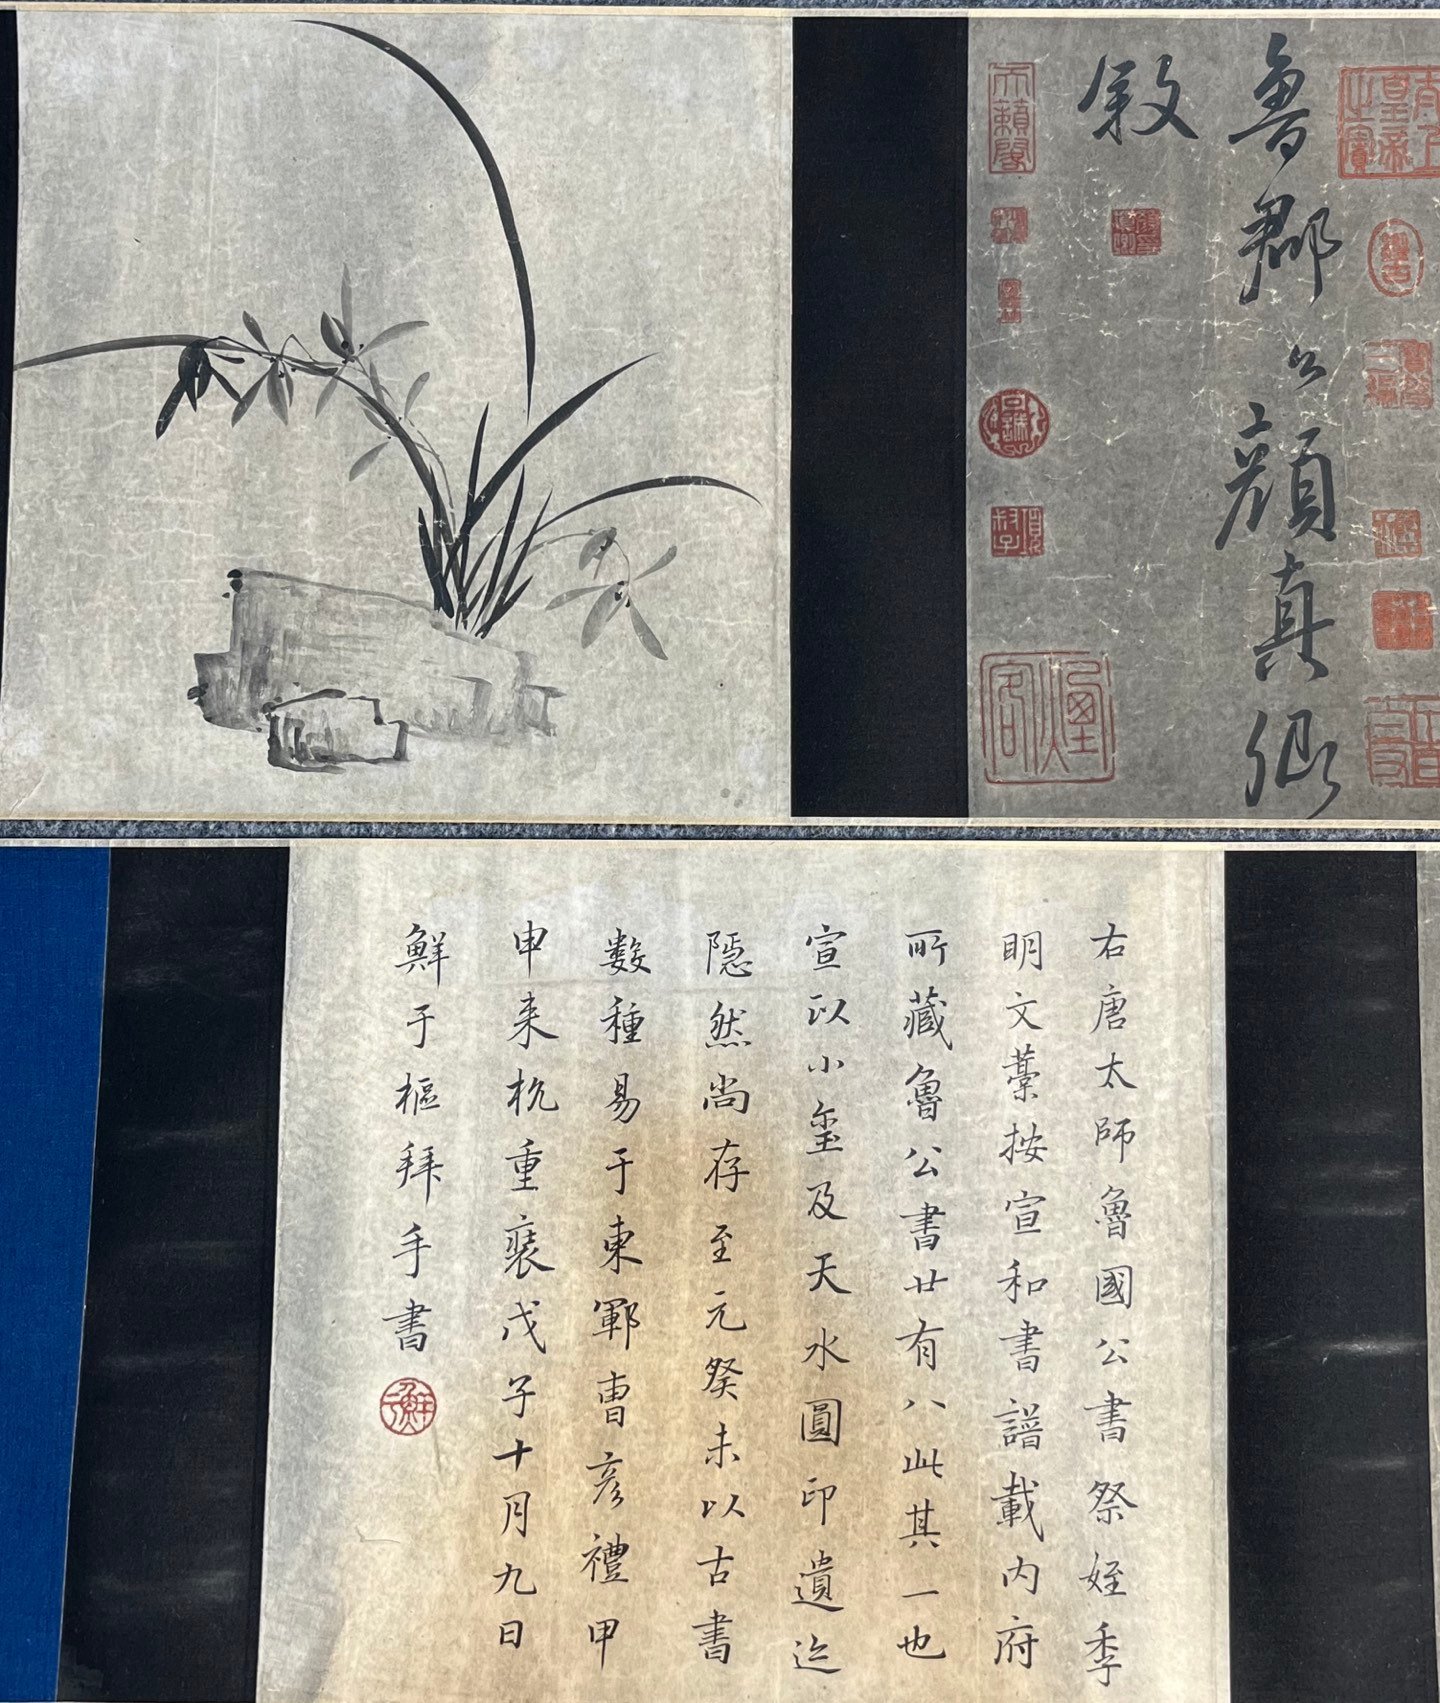 魯郡公顏真卿
敘
天籟閣
右唐太師魯國公書祭姪季
明文藁按宣和書譜載內府
所藏魯公書廿有八此其一也
宣以小璽及天水圓印遺迹
隱然尚存至元癸未以古書
數種易于東鄆曹彥禮甲
申来杭重裝戊子十月九日
鮮于樞拜手書